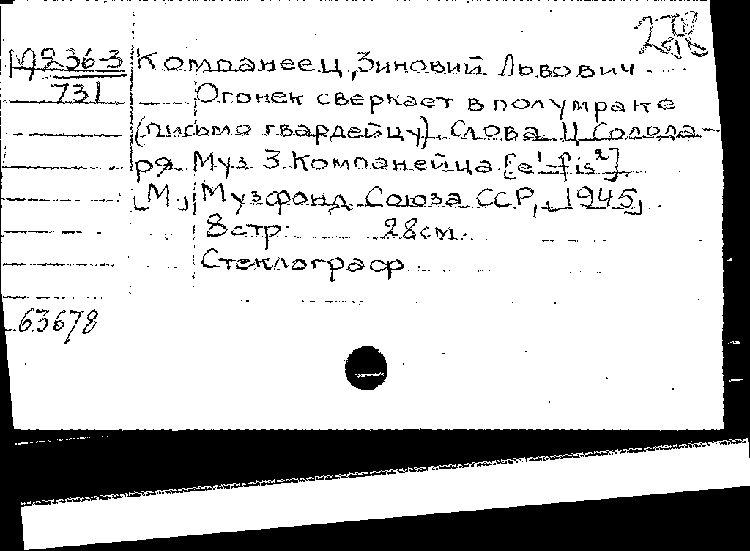 278
М 236-3 Компанеец, Зиновий Львович.
731 Огонек сверкает в полумраке
(письмо гвардейцу). Слова Ц. Солода-
ря Муз З. Компанейца [e¹-fis²]
[М.,] Музфонд Союза ССР, [1945]
8 стр. 28 см.
Стеклограф
63678